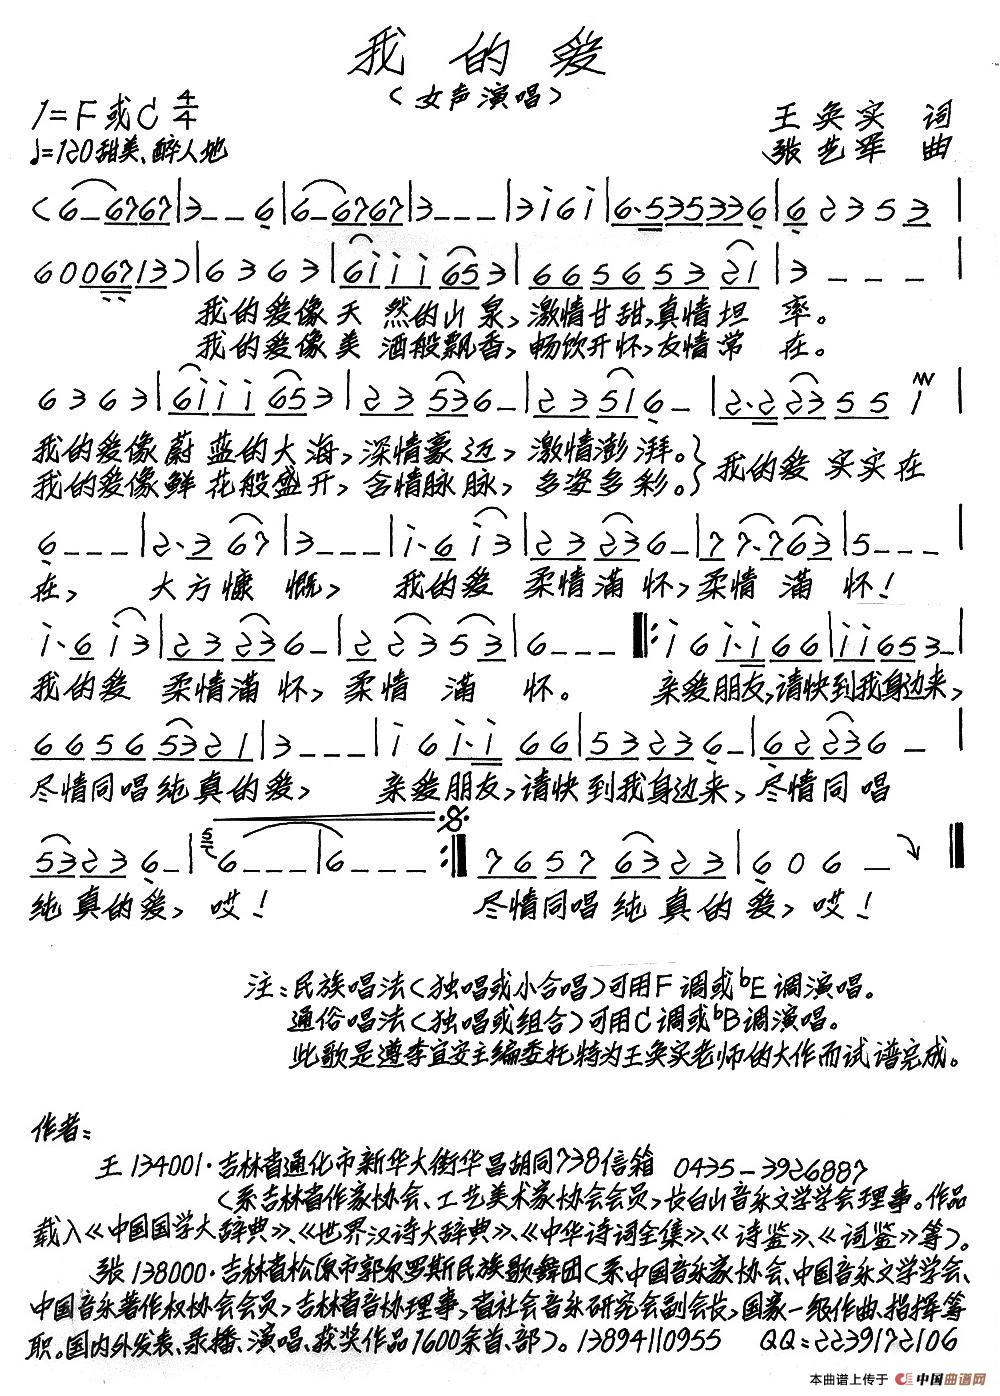 我的爱
（女声演唱）
1=F或C 4/4
王奂实 词
♩=120 甜美、醉人地
张艺军 曲
(6 - 6767|3 - - 6|6 - 6767|3 - - -|3i6i|6·535336|62353|
6006713)|6363|6iii653|66565321|3 - - -|
我的爱像天然的山泉，激情甘甜，真情坦率。
我的爱像美酒般飘香，畅饮开怀，友情常在。
6363|6iii653|23536 -|23516 -|2·22355i|
我的爱像蔚蓝的大海，深情豪迈，激情澎湃。}我的爱实实在
我的爱像鲜花般盛开，含情脉脉，多姿多彩。
6 - - -|2·367|3 - - -|i·6i3|23236 -|77·763|5 - - -|
在，大方慷慨，我的爱柔情满怀，柔情满怀！
i·6i3|23236 -|22353|6 - - -‖:i6i·i66|ii653 -|
我的爱柔情满怀，柔情满怀。亲爱朋友，请快到我身边来，
66565321|3 - - -|i6i·i66|53236 -|62236 -|
尽情同唱纯真的爱，亲爱朋友，请快到我身边来，尽情同唱
53236 -|5 6 - - -|6 - - -:‖76576323|606 -‖
纯真的爱，哎！尽情同唱纯真的爱，哎！
注：民族唱法（独唱或小合唱）可用F调或bE调演唱。
通俗唱法（独唱或组合）可用C调或bB调演唱。
此歌是遵李宜安主编委托特为王奂实老师的大作而试谱完成。
作者：
王 134001·吉林省通化市新华大街华昌胡同738信箱 0435-3926887
（系吉林省作家协会、工艺美术家协会会员，长白山音乐文学学会理事。作品
载入《中国国学大辞典》、《世界汉诗大辞典》、《中华诗词全集》、《诗鉴》、《词鉴》等）。
张 138000·吉林省松原市郭尔罗斯民族歌舞团（系中国音乐家协会、中国音乐文学学会、
中国音乐著作权协会会员，吉林省音协理事，省社会音乐研究会副会长，国家一级作曲、指挥等
职。国内外发表、录播、演唱、获奖作品1600余首、部）。13894110955 QQ：2239172106
本曲谱上传于 中国曲谱网